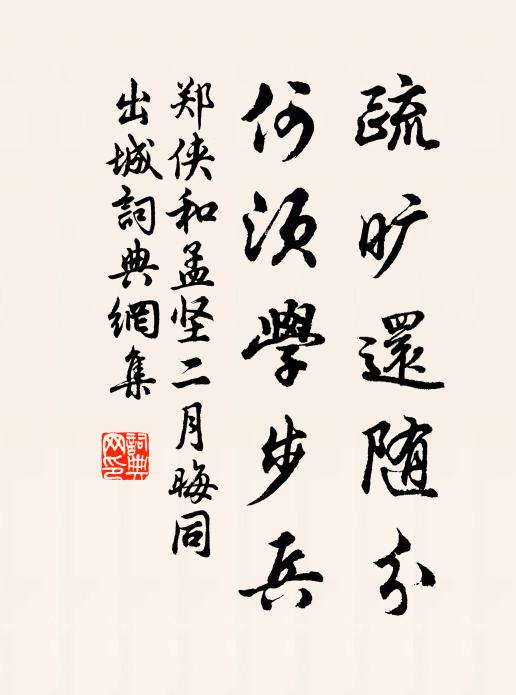 疏旷還随分
何须學步兵
郑侠和孟坚二月晦同
出城詞典網集
詞典網印